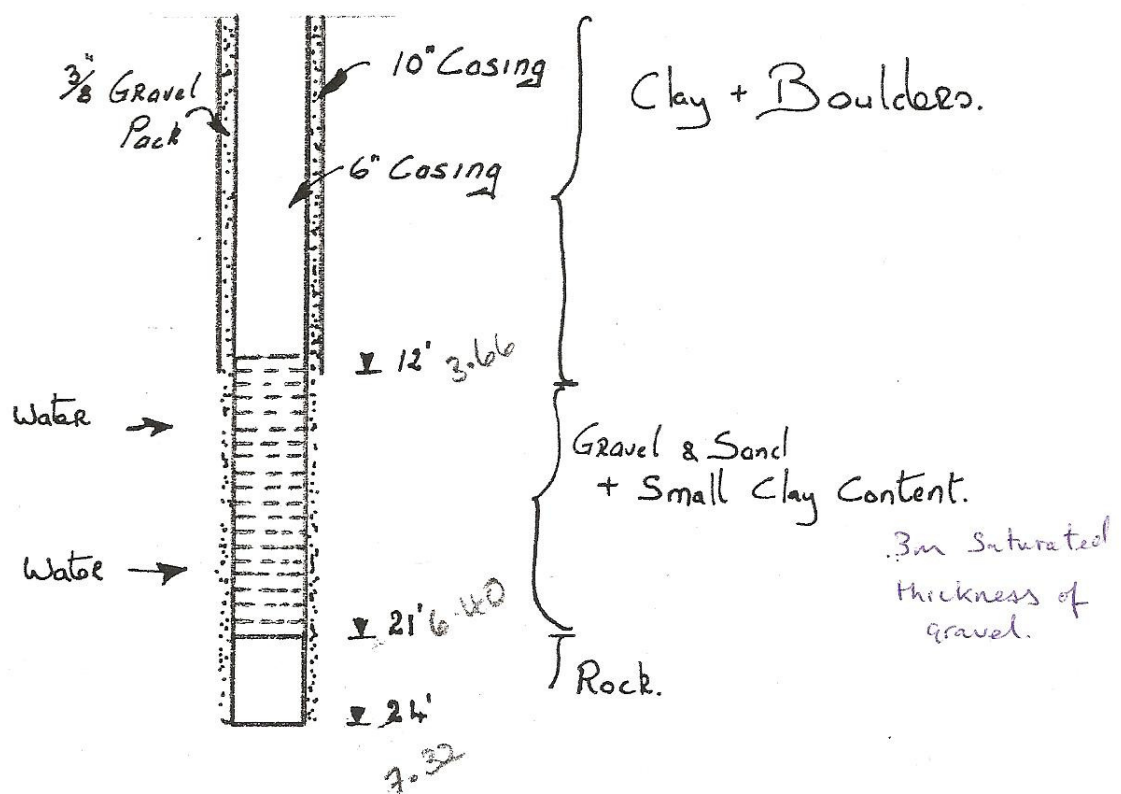 3/8" Gravel
Pack
10" Casing
6" Casing
Clay + Boulders.
12' 3.66
Water
Gravel & Sand
+ Small Clay Content.
Water
3m Saturated
thickness of
gravel.
21' 6.40
Rock.
24'
7.32